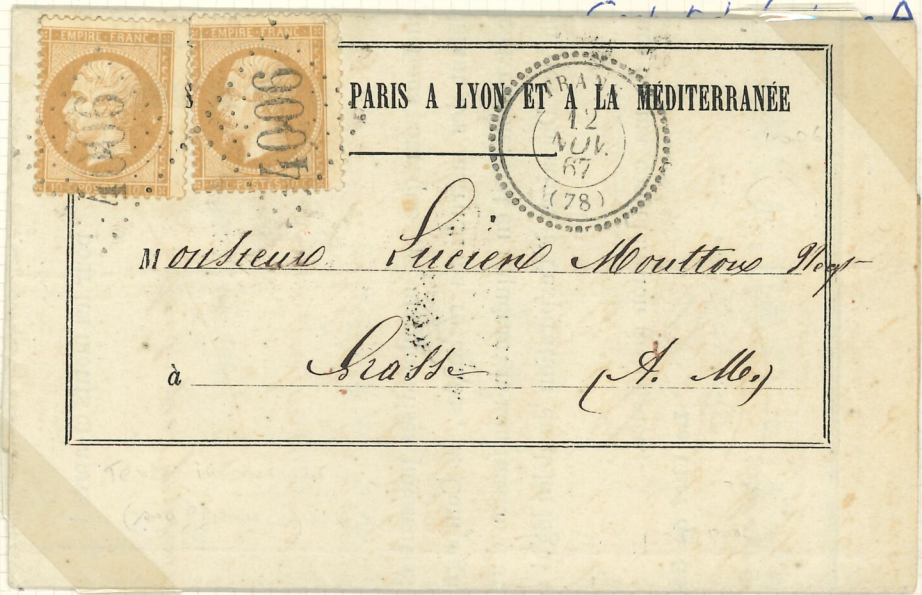 EMPIRE FRANC
EMPIRE FRANC
4006
4006
PARIS A LYON ET A LA MÉDITERRANÉE
12
NOV.
67
(78)
Monsieur Lucien Mouttou Negt
à Grasse (A. M.)